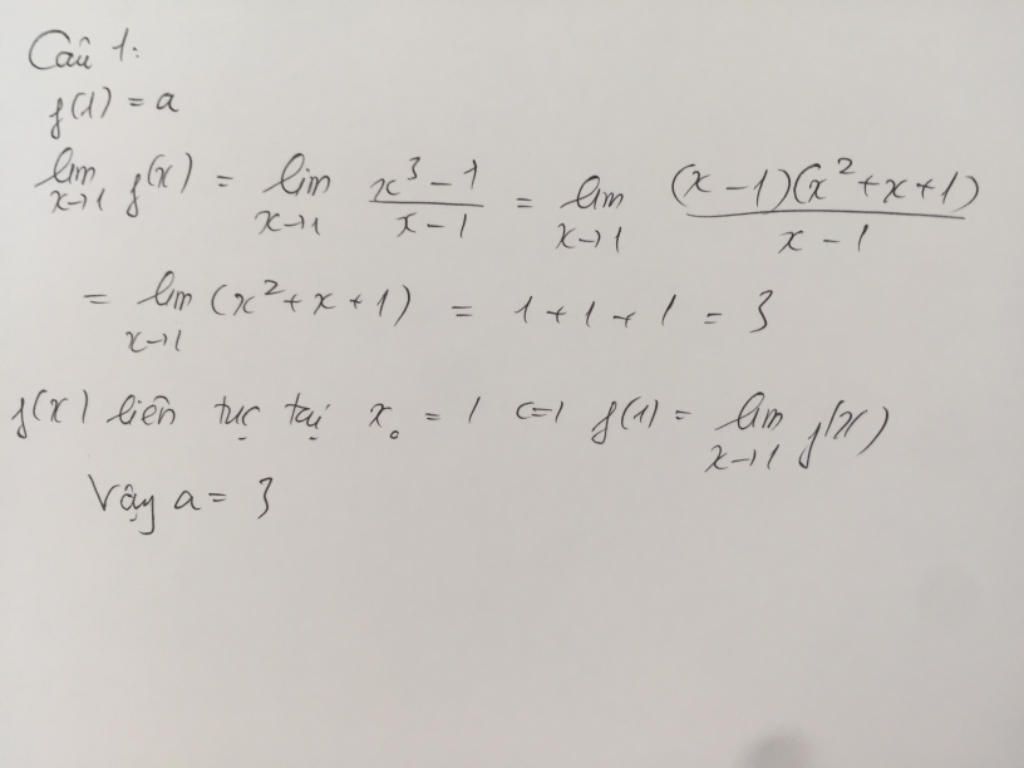 Câu 1:
f(1) = a
lim x→1 f(x) = lim x→1 (x³ - 1)/(x - 1) = lim x→1 ((x - 1)(x² + x + 1))/(x - 1)
= lim x→1 (x² + x + 1) = 1 + 1 + 1 = 3
f(x) liên tục tại x₀ = 1 <=> f(1) = lim x→1 f(x)
Vậy a = 3